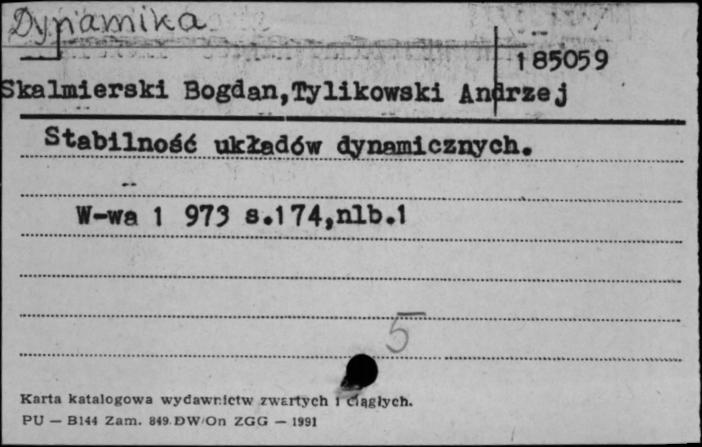 Dynamika
185059
Skalmierski Bogdan,Tylikowski Andrzej
Stabilność układów dynamicznych.
W-wa 1 973 s.174,nlb.1
5
Karta katalogowa wydawnictw zwartych i ciągłych.
PU — B144 Zam. 849.DW/On ZGG — 1991